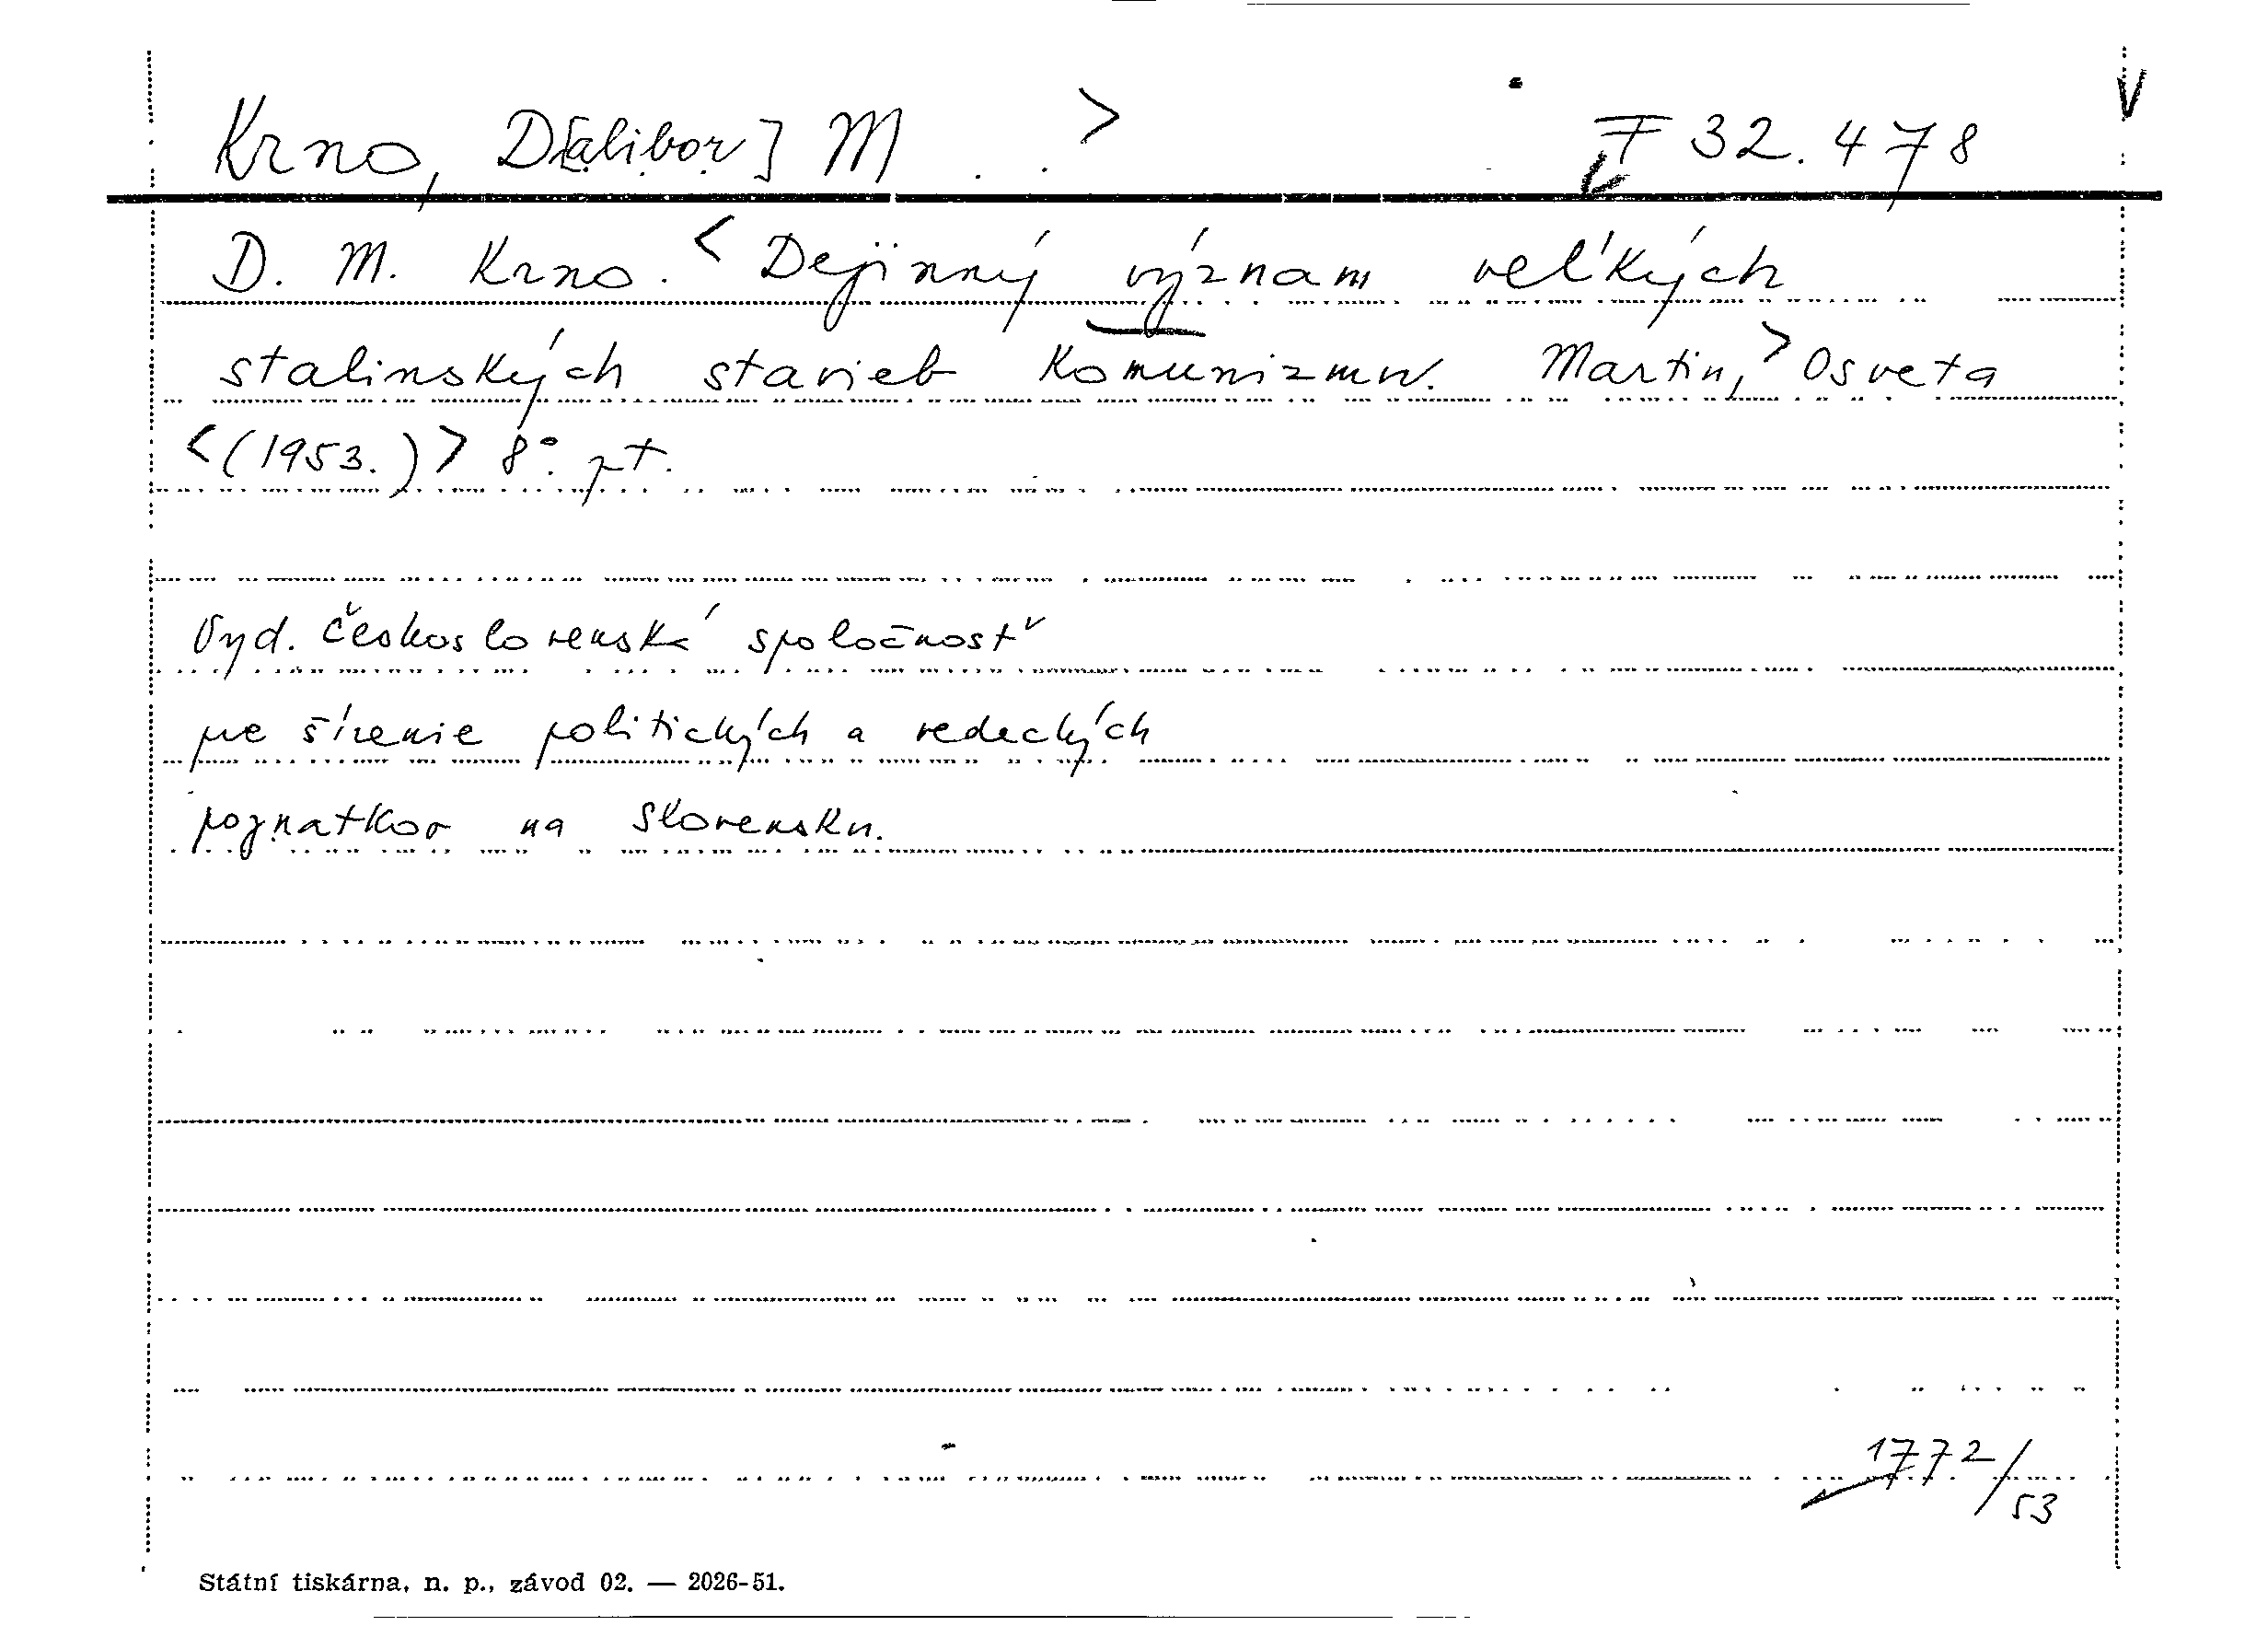 Krno, D[alibor] M . . > F 32.478
D. M. Krno. < Dejinný význam veľkých
stalinských stavieb komunizmu. Martin, > Osveta
<(1953.)> 8°. pt.
Vyd. Československá spoločnosť
pre šírenie politických a vedeckých
poznatkov na Slovensku.
1772/53
Státní tiskárna, n. p., závod 02. — 2026-51.